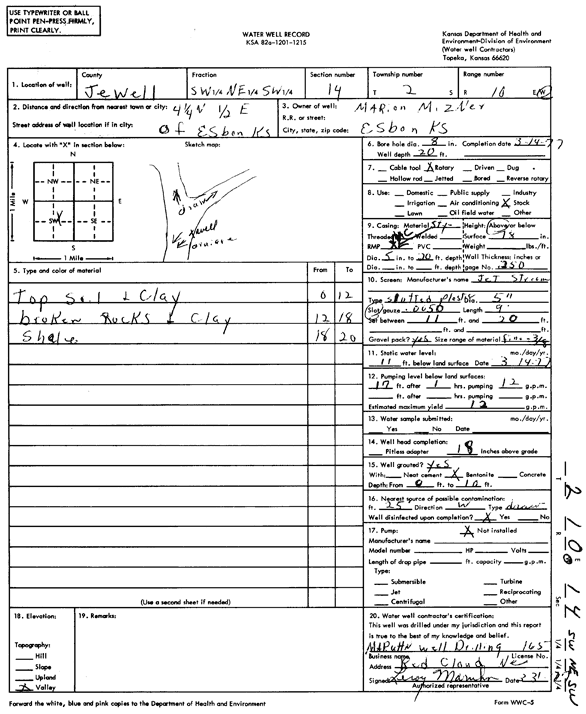 USE TYPEWRITER OR BALL
POINT PEN-PRESS FIRMLY,
PRINT CLEARLY.
WATER WELL RECORD
KSA 82a-1201-1215
Kansas Department of Health and
Environment-Division of Environment
(Water well Contractors)
Topeka, Kansas 66620
1. Location of well: County Jewell Fraction SW 1/4 NE 1/4 SW 1/4 Section number 14 Township number T 2 S Range number R 10 E/W
2. Distance and direction from nearest town or city: 4 1/4 N 1/2 E
Street address of well location if in city: of Esbon Ks
3. Owner of well: Marion Mizner
R.R. or street:
City, state, zip code: Esbon KS
4. Locate with "X" in section below:
Sketch map:
N
NW NE
W E
SW X SE
S
1 Mile
1 Mile
draw
Jewell
5. Type and color of material From To
Top Soil & Clay 0 12
broken Rocks & Clay 12 18
Shale 18 20
(Use a second sheet if needed)
6. Bore hole dia. 8 in. Completion date 3-14-77
Well depth 20 ft.
7. Cable tool X Rotary Driven Dug
Hollow rod Jetted Bored Reverse rotary
8. Use: Domestic Public supply Industry
Irrigation Air conditioning X Stock
Lawn Oil field water Other
9. Casing: Material Height: Above or below
Threaded Welded Surface 18 in.
RMP PVC Weight lbs./ft.
Dia. 5 in. to 20 ft. depth Wall Thickness: inches or
Dia. in. to ft. depth gage No. .250
10. Screen: Manufacturer's name Jet Stream
Type Slotted Plastic 5"
Slot/gauze .0050 Length 9'
Set between 11 ft. and 20 ft.
ft. and ft.
Gravel pack? yes Size range of material
11. Static water level: mo./day/yr.
11 ft. below land surface Date 3-14-77
12. Pumping level below land surfaces:
17 ft. after 1 hrs. pumping 12 g.p.m.
ft. after hrs. pumping g.p.m.
Estimated maximum yield 12 g.p.m.
13. Water sample submitted: mo./day/yr.
Yes No Date
14. Well head completion:
Pitless adapter 18 Inches above grade
15. Well grouted? yes
With: Neat cement X Bentonite Concrete
Depth: From 0 ft. to 10 ft.
16. Nearest source of possible contamination:
ft. 25 Direction W Type draw
Well disinfected upon completion? X Yes No
17. Pump: X Not installed
Manufacturer's name
Model number HP Volts
Length of drop pipe ft. capacity g.p.m.
Type:
Submersible Turbine
Jet Reciprocating
Centrifugal Other
18. Elevation:
Topography:
Hill
Slope
Upland
X Valley
19. Remarks:
20. Water well contractor's certification:
This well was drilled under my jurisdiction and this report
is true to the best of my knowledge and belief.
Well Drilling 165
Business name License No.
Address Red Cloud Ne
Signed Leroy Date
Authorized representative
Forward the white, blue and pink copies to the Department of Health and Environment
Form WWC-5
T 2 R 10 E Sec 14 SW NE SW
1/4 1/4 1/4